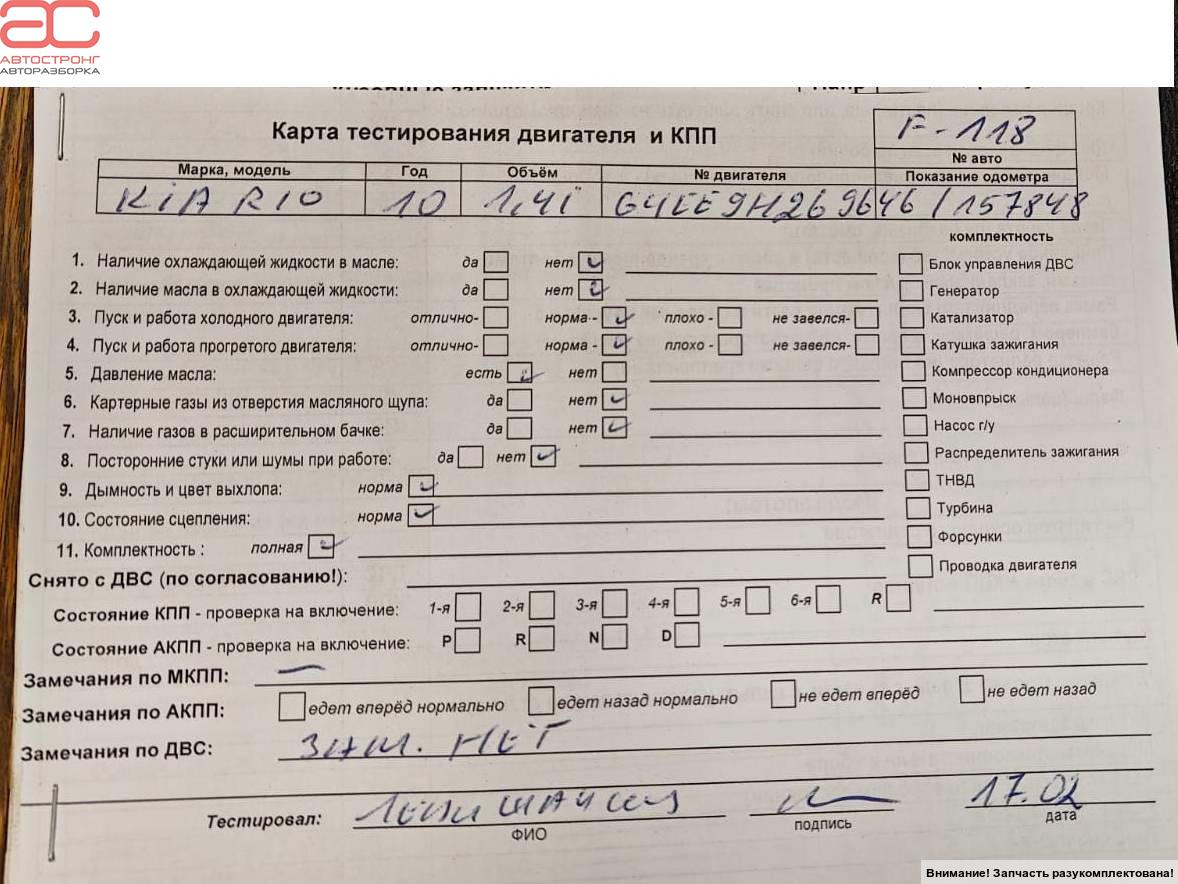 АС
АВТОСТРОНГ
АВТОРАЗБОРКА
Карта тестирования двигателя и КПП
F-118
№ авто
Марка, модель Год Объём № двигателя Показание одометра
KiA RIO 10 1,4i G4EE9H269646 / 157848
комплектность
1. Наличие охлаждающей жидкости в масле: да нет Блок управления ДВС
2. Наличие масла в охлаждающей жидкости: да нет Генератор
3. Пуск и работа холодного двигателя: отлично- норма - плохо - не завелся- Катализатор
4. Пуск и работа прогретого двигателя: отлично- норма - плохо - не завелся- Катушка зажигания
5. Давление масла: есть нет Компрессор кондиционера
6. Картерные газы из отверстия масляного щупа: да нет Моновпрыск
7. Наличие газов в расширительном бачке: да нет Насос г/у
8. Посторонние стуки или шумы при работе: да нет Распределитель зажигания
9. Дымность и цвет выхлопа: норма ТНВД
10. Состояние сцепления: норма Турбина
11. Комплектность : полная Форсунки
Снято с ДВС (по согласованию!): Проводка двигателя
Состояние КПП - проверка на включение: 1-я 2-я 3-я 4-я 5-я 6-я R
Состояние АКПП - проверка на включение: P R N D
Замечания по МКПП: —
Замечания по АКПП: едет вперёд нормально едет назад нормально не едет вперёд не едет назад
Замечания по ДВС: ЗАМ. НЕТ
Тестировал: 17.02
ФИО подпись дата
Внимание! Запчасть разукомплектована!